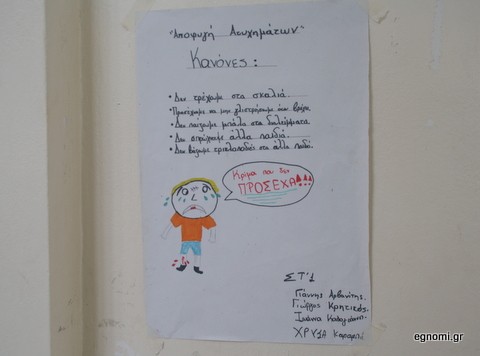 "Αποφυγή Ατυχημάτων"
Κανόνες:
• Δεν τρέχουμε στα σκαλιά.
• Προσέχουμε να μην γλιστρήσουμε όταν βρέχει.
• Δεν παίζουμε μπάλα στα διαλείμματα.
• Δεν σπρώχνουμε άλλα παιδιά.
• Δεν βάζουμε τρικλοποδιές στα άλλα παιδιά.
Κρίμα που δεν
ΠΡΟΣΕΧΑ!!!...
ΣΤ'1
Γιάννης Αρβανίτης.
Γιώργος Κρητικός.
Ιωάννα
ΧΡΥΣΑ
egnomi.gr